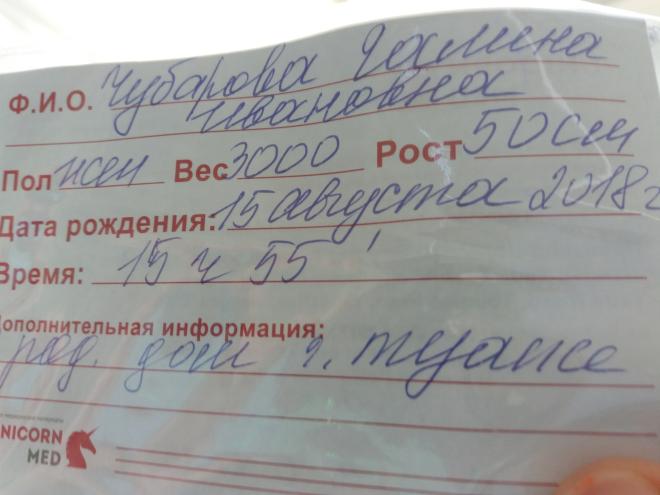 Ф.И.О. Чубарова Галина
Ивановна
Пол жен Вес 3000 Рост 50 см
Дата рождения: 15 августа 2018 г
Время: 15 ч 55'
Дополнительная информация:
род. дом г. Туапсе
NICORN
MED